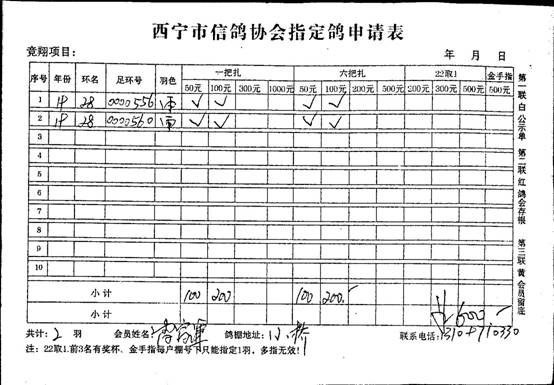 西宁市信鸽协会指定鸽申请表
竞翔项目： 年 月 日
序号 年份 环名 足环号 羽色 一把扎 六把扎 22取1 金手指
50元 100元 300元 1000元 50元 100元 200元 500元 200元 300元 500元 500元
1 28 0000556 雨 ✓ ✓ ✓ ✓
2 28 0000560 雨 ✓ ✓ ✓ ✓
3
4
5
6
7
8
9
10
小计 100 200 100 200
小计 600
共计：2 羽 会员姓名： 鸽棚地址：小桥 联系电话：
注：22取1.前3名有奖杯、金手指每户棚号下只能指定1羽，多指无效！
第一联 白 公示单 第二联 红 鸽会存根 第三联 黄 会员留底